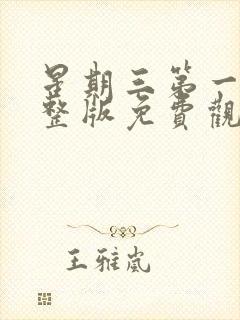 星期三第一
整版免費觀
王雅嵐